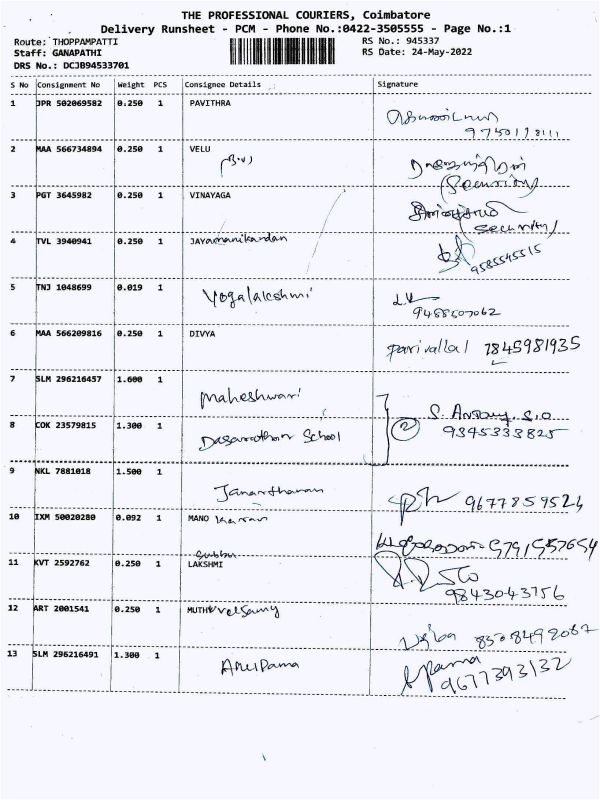 THE PROFESSIONAL COURIERS, Coimbatore
Delivery Runsheet - PCM - Phone No.:0422-3505555 - Page No.:1
Route: THOPPAMPATTI RS No.: 945337
Staff: GANAPATHI RS Date: 24-May-2022
DRS No.: DCJB94533701
S No Consignment No Weight PCS Consignee Details Signature
1 JPR 502069582 0.250 1 PAVITHRA
2 MAA 566734894 0.250 1 VELU
(Security)
3 PGT 3645982 0.250 1 VINAYAGA
(Security)
4 TVL 3940941 0.250 1 JAYamanikandan
9585545515
5 TNJ 1048699 0.019 1 Yogalakshmi
9488507062
6 MAA 566209816 0.250 1 DIVYA
Parivallal 7845981935
7 SLM 296216457 1.600 1 Maheshwari
8 COK 23579815 1.300 1 Dasarathan School
2 S. Antony. S.O
9345333825
9 NKL 7881018 1.500 1 Janantharan
9677859524
10 IXM 50020280 0.092 1 MANO
9791557654
Subbu
11 KVT 2592762 0.250 1 LAKSHMI
9843043756
12 ART 2001541 0.250 1 MUTHUvelsamy
8508492087
13 SLM 296216491 1.300 1 Anupama
9677393132